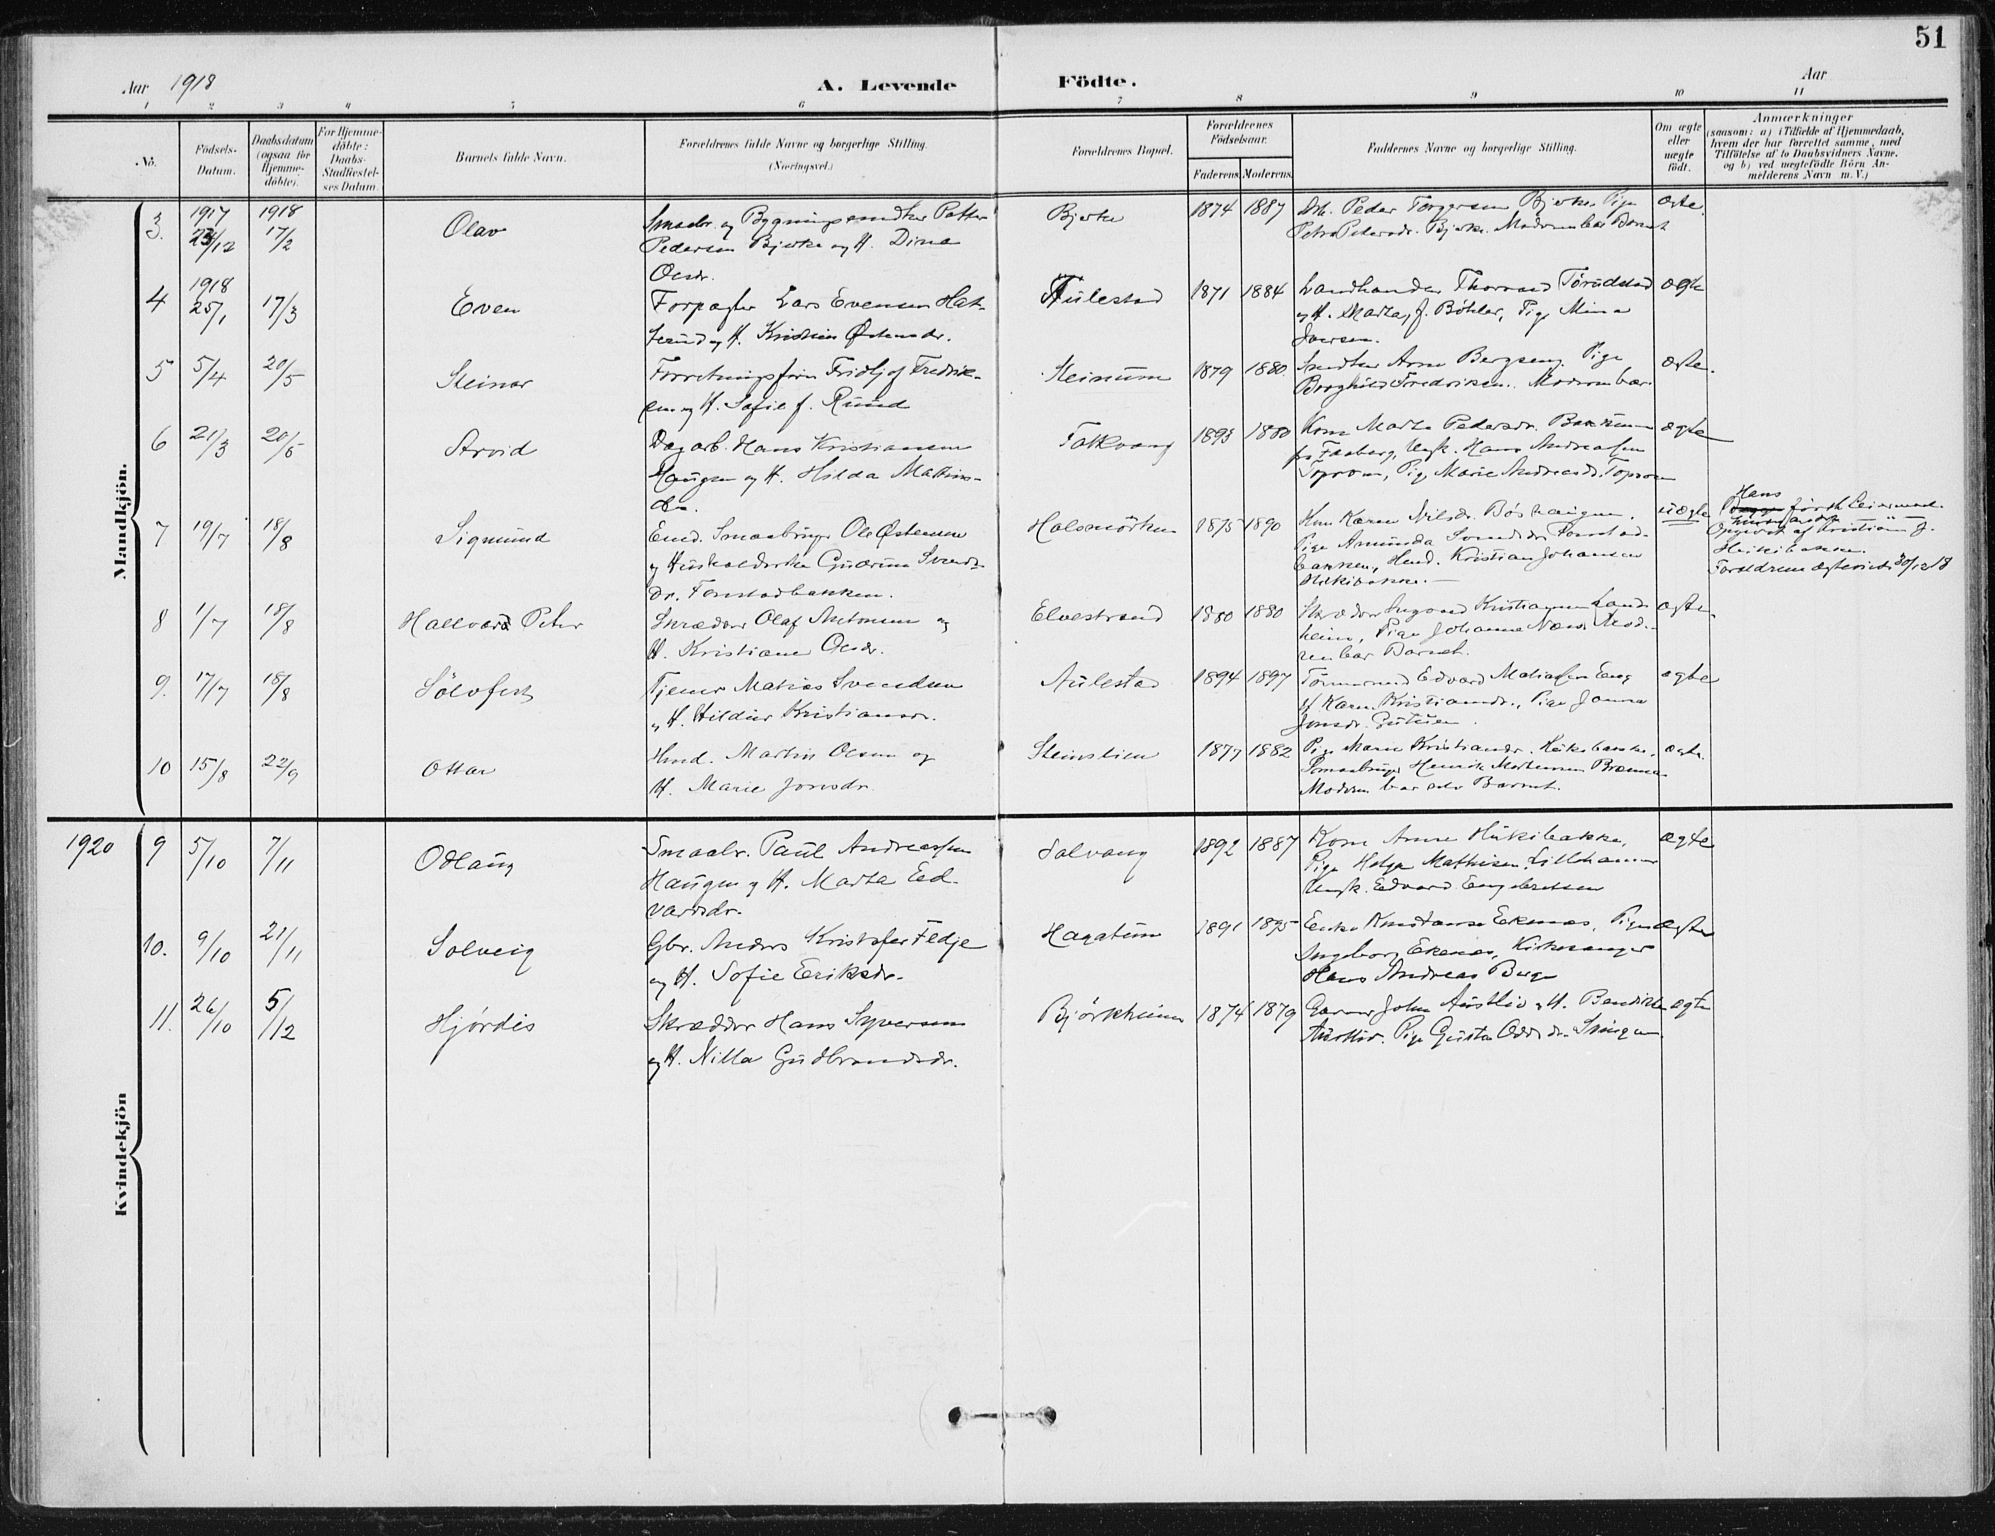 51
Aar 1918
A. Levende Födte.
Aar
1 2 3 4 5 6 7 8 9 10 11
No.
Födsels-Datum.
Daabsdatum (ogsaa for Hjemme-döbte).
For Hjemme-döbte: Daabs-Stadfæstel-ses Datum.
Barnets fulde Navn.
Forældrenes fulde Navne og borgerlige Stilling.
(Næringsvei.)
Forældrenes Bopæl.
Forældrenes Födselsaar.
Faderens. Moderens.
Faddernes Navne og borgerlige Stilling.
Om ægte eller uægte födt.
Anmærkninger
(saasom: a) i Tilfælde af Hjemmedaab,
hvem der har forrettet samme, med
Tilföielse af to Daabsvidners Navne.
og b) ved uægtefödte Börn An-
melderens Navn m. V.)
Mandkjön.
3. 1917 23/12 1918 17/2 Olav
Smaabr. og Bygningssnedker Petter
Pedersen Bjerke og H. Dina
Olsdr.
Bjerke 1874 1887
Arb. Peder Torgersen Bjerke, Pige
Petra Petersdr. Bjerke. Moderen bar Barnet
ægte.
4 1918 25/1 17/3 Even
Forpagter Lars Evensen
og H. Kristine Østensdr.
Aulestad 1871 1884
Landhandler Thorvald
og H. Marta, f. Böhler, Pige Mina
Iversen.
ægte
5 5/4 20/5 Steinar
Forretningsfører Fridtjof Fredrik-
sen og H. Sofie f. Ruud
Steinum 1879 1880
Snedker Arne Bergseng, Pige
Borghild Fredriksen. Moderen bar
ægte.
6 21/3 20/5 Arvid
Dagarb. Hans Kristiansen
Haugen og H. Hilda Mathias-
dr.
Folkvang 1893 1880
Kone Marte Pedersdr.
fra Faaberg, Ungk. Hans Andreassen
Toprom, Pige Marie Andreasdr. Toprom
ægte
7 19/7 18/8 Sigmund
Enk. Smaabruger Ole Østensen
og Husholderske Gudrun Svends-
dr. Fonstadbakken.
Holsmörken 1875 1890
Kone Karen Nilsdr. Böshaugen.
Pige Amunda Svendsdr. Fonstad-
bakken, Hmd. Kristian Johansen
Heikibakke.
uægte
Hans første Leiermaal.
hendes andet
Opgivet af Kristian J.
Heikibakke.
Forældrene ægteviet 30/12 18
8 1/7 18/8 Hallvard Peter
Skrædder Olaf Antonsen og
H. Kristiane Olsdr.
Elvestrand 1880 1880
Skrædder Ingvald Kristiansen Land-
heim, Pige Johanne Næss. Mod-
eren bar Barnet.
ægte
9. 17/7 18/8 Sölvfest
Tjener Matias Svendsen
og H. Hildur Kristiansdr.
Aulestad 1894 1897
Tömmermd Edvard Matiassen Eng
H Karen Kristiansdr., Pige Janna
Jonsdr.
ægte
10 15/8 22/9 Ottar
Hmd. Martin Olsen og
H. Marie Jonsdr.
Steinslien 1877 1882
Pige Maren Kristiansdr. Heikibakke,
Smaabruger Henrik Mortensen
Moderen bar selv Barnet.
ægte.
Kvindekjön
1920 9 5/10 7/11 Odlaug
Smaabr. Paul Andreassen
Haugen og H. Marta Ed-
vardsdr.
Solvang 1892 1887
Kone Anne Heikibakke,
Pige Helga Mathisen, Lillehammer
Ungk. Edvard Engebretsen
ægte
10. 9/10 21/11 Solveig
Gbr. Anders Kristofer Fedje
og H. Sofie Eriksdr.
Hagatun 1891 1895
Enke Konstanse Ekenes, Pige
Ingeborg Ekenes, Kirkesanger
Hans Andreas Berge
ægte
11. 26/10 5/12 Hjördis
Skrædder Hans Syversen
og H. Nilla Gudbrandsdr.
Björkheim 1874 1879
Garver John Austlid og H. Bendikte
Austlid. Pige Gusta Oddsdr.
ægte